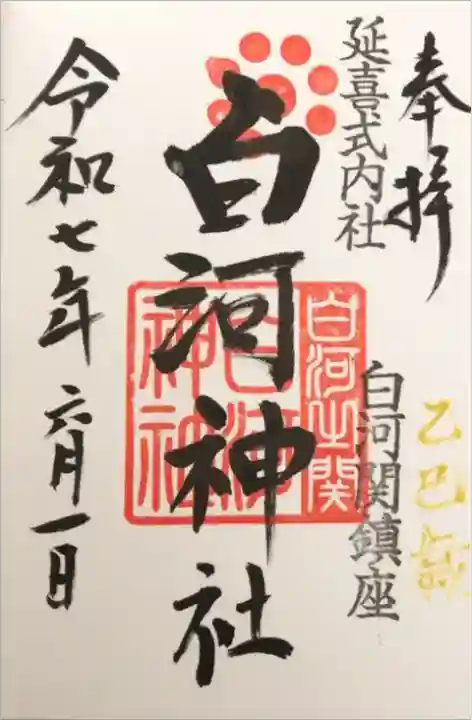 奉拝
延喜式内社
白河関鎮座
乙巳歳
白河神社
白河之関
白河
神社
令和七年六月一日